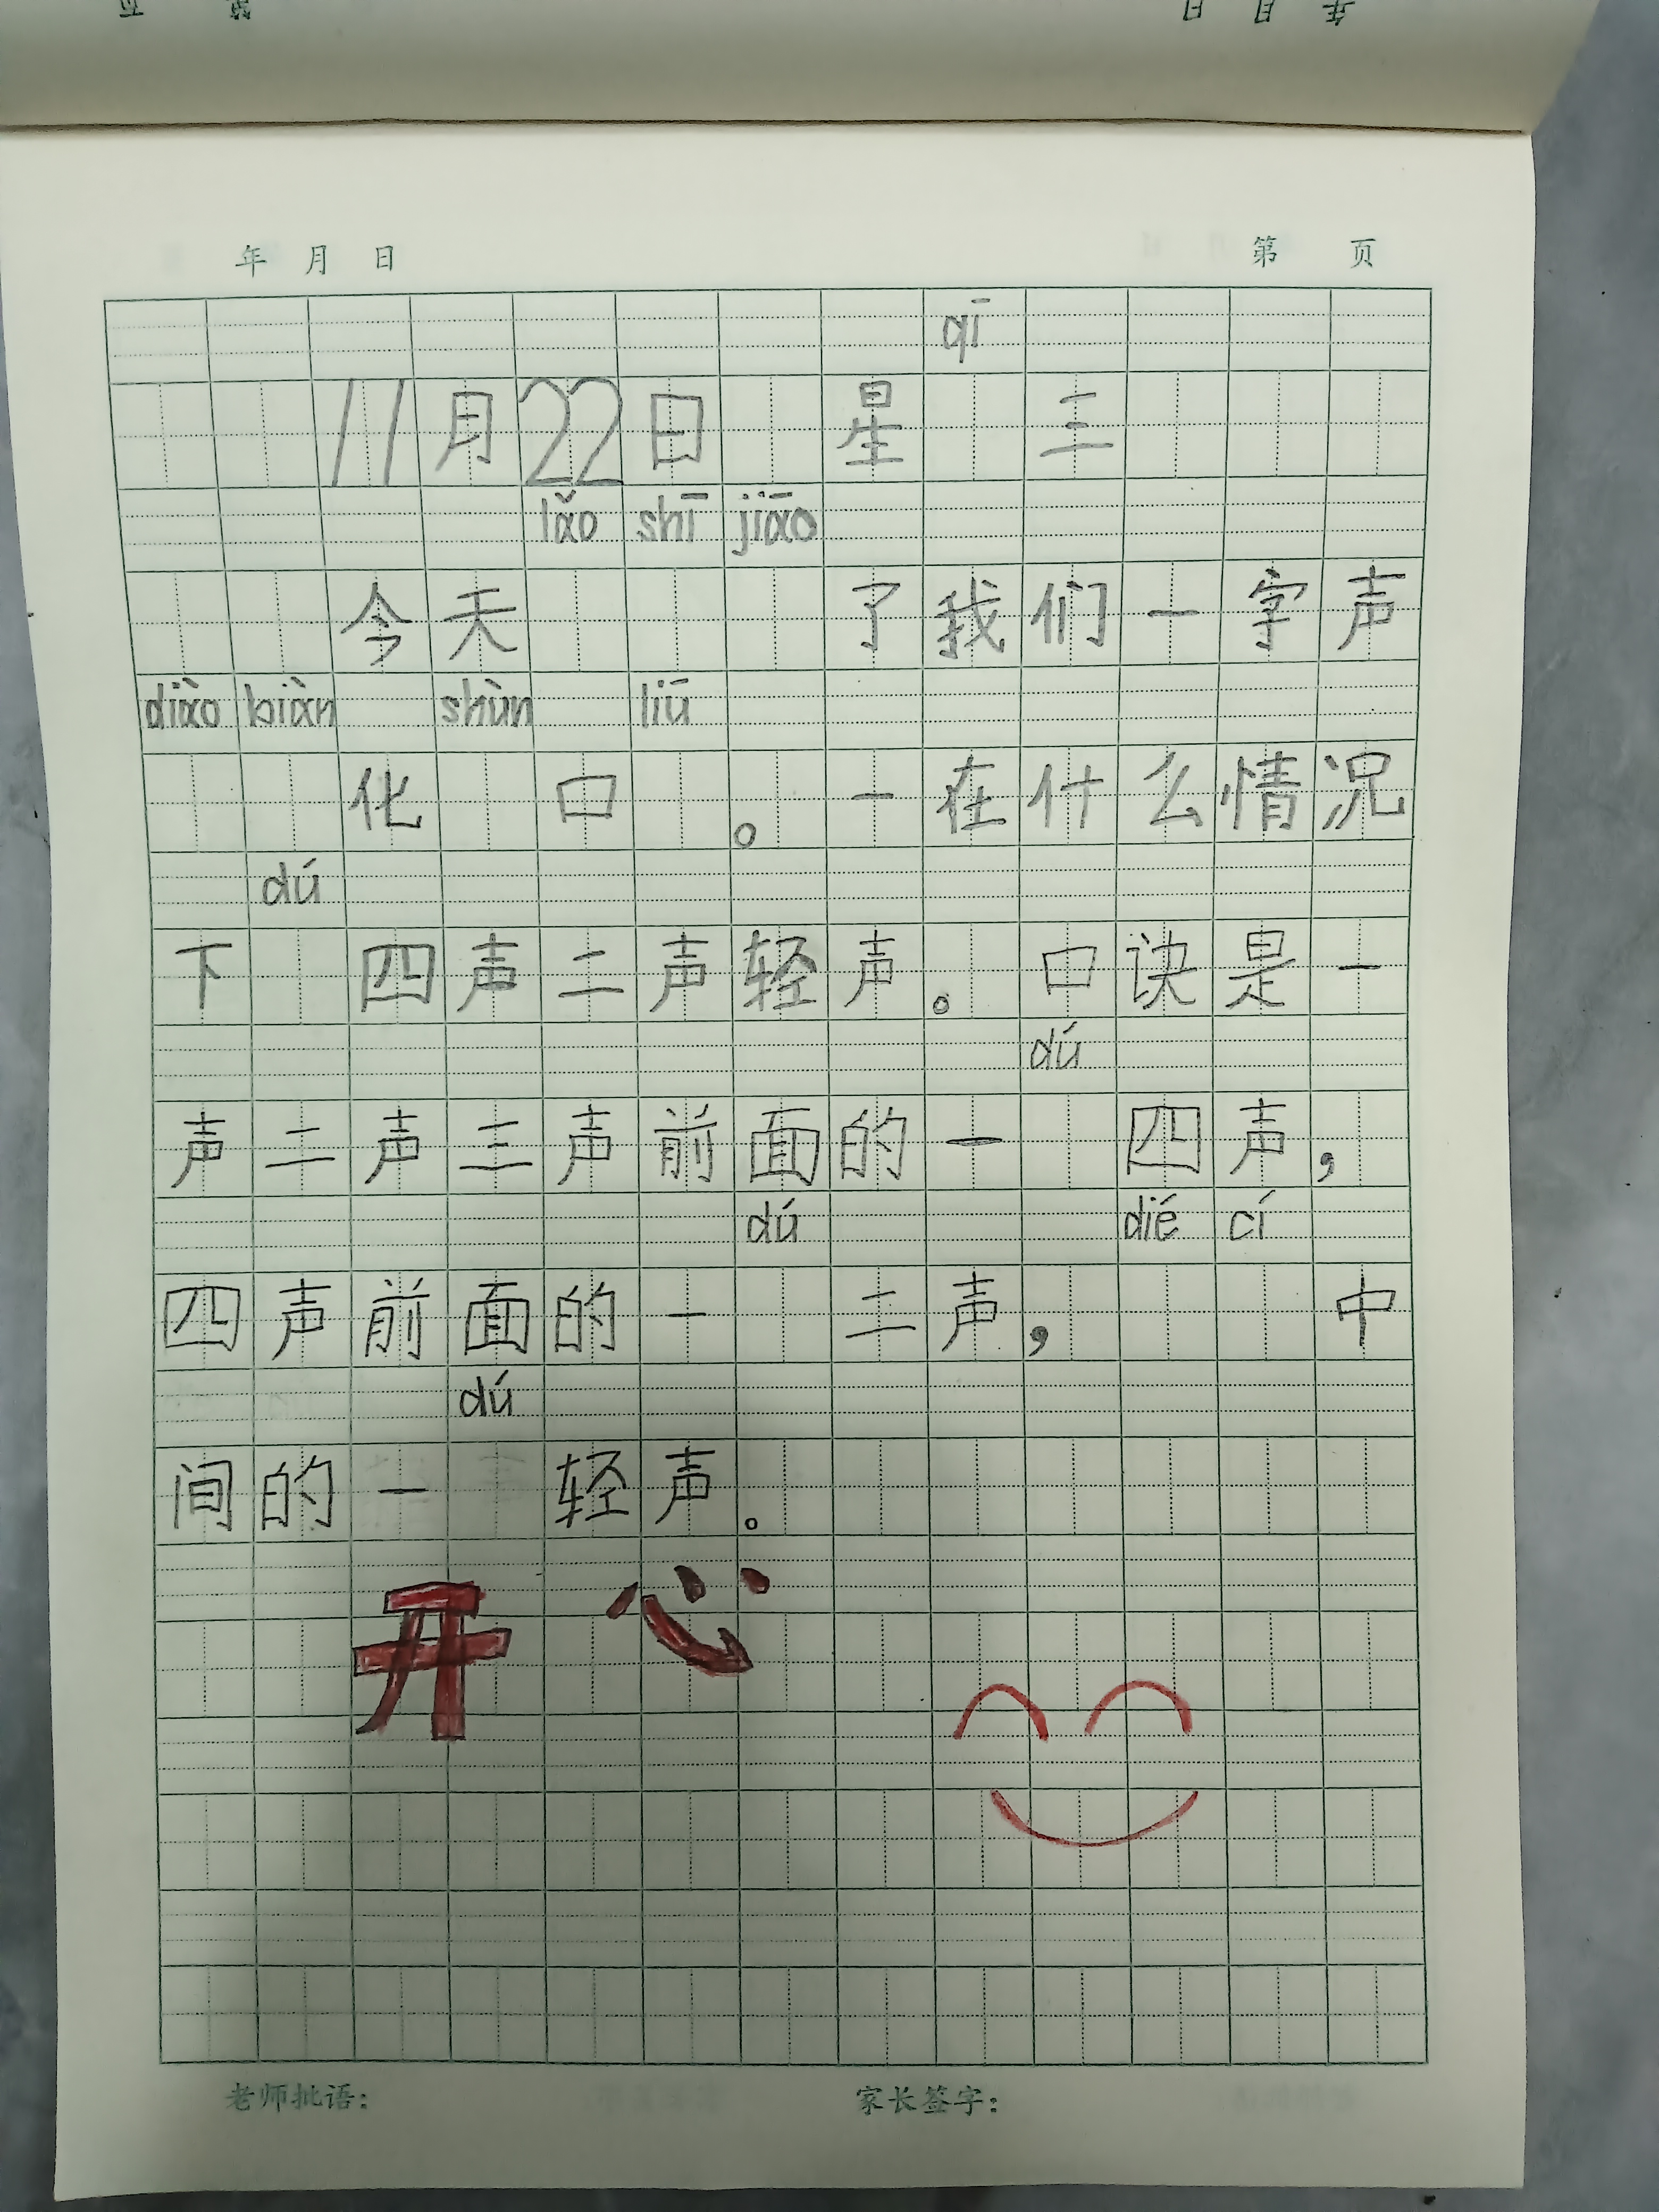 年 月 日 第 页
qī
11月22日 星 三
lǎo shī jiāo
今天 了我们一字声
diào biàn shùn liū
化 口 。一在什么情况
dú
下 四声二声轻声。口诀是一
dú
声二声三声前面的一 四声，
dú dié cí
四声前面的一 二声， 中
dú
间的一 轻声。
开心
老师批语： 家长签字：